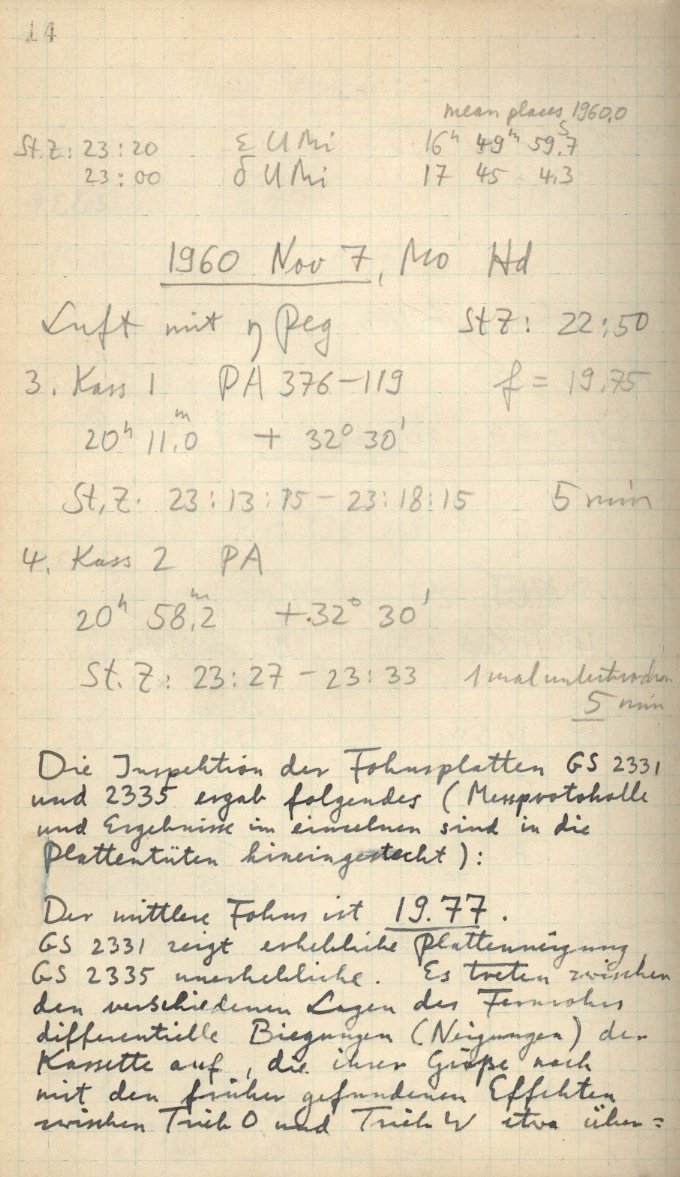 14
mean places 1960,0
St.Z: 23:20 ε UMi 16ʰ 49ᵐ 59ˢ.7
23:00 δ UMi 17 45 4.3
1960 Nov 7, Mo Hd
Luft mit η Peg StZ: 22:50
3. Kass 1 PA 376-119 f = 19.75
20ʰ 11ᵐ.0 + 32° 30'
St.Z. 23:13:15 - 23:18:15 5 min
4. Kass 2 PA
20ʰ 58ᵐ.2 + 32° 30'
St.Z: 23:27 - 23:33 1 mal unterbrochen
5 min
Die Inspektion der Fokusplatten GS 2331
und 2335 ergab folgendes (Messprotokolle
und Ergebnisse im einzelnen sind in die
Plattentüten hineingesteckt):
Der mittlere Fokus ist 19.77.
GS 2331 zeigt erhebliche Plattenneigung,
GS 2335 unerhebliche. Es treten zwischen
den verschiedenen Lagen des Fernrohrs
differentielle Biegungen (Neigungen) der
Kassette auf, die ihrer Größe nach
mit den früher gefundenen Effekten
zwischen Trieb O und Trieb W etwa über=